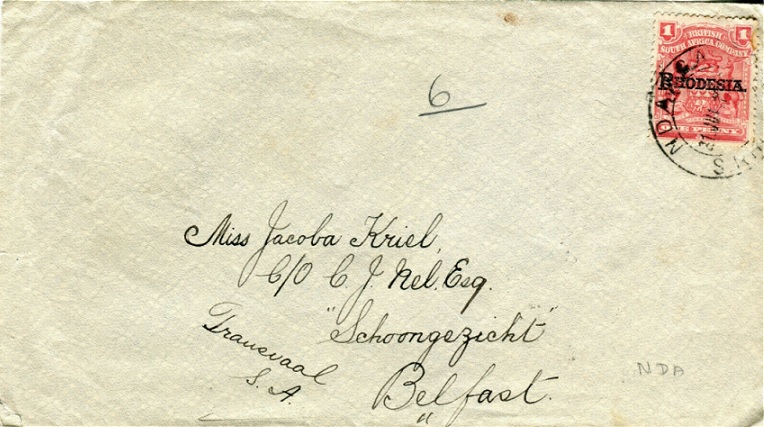 1 BRITISH 1
SOUTH AFRICA COMPANY
RHODESIA.
ONE PENNY
6
Miss Jacoba Kriel,
C/O C. J. Nel. Esq.
"Schoongezicht"
Belfast.
Transvaal
S. A.
NDA